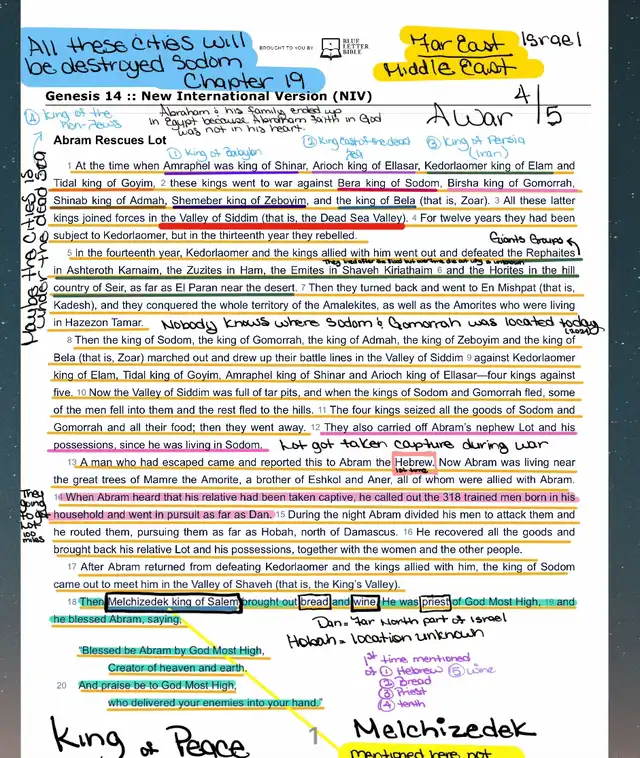 All these cities will
be destroyed Sodom
Chapter 19
BROUGHT TO YOU BY
BLUE
LETTER
BIBLE
Far East
Israel
Middle East
Genesis 14 :: New International Version (NIV)
A war 4/5
④ King of the
non-Jews
Abraham & his family ended up
in Egypt because Abraham faith in God
was not in his heart.
Abram Rescues Lot
① King of Babylon
② King east of the dead
sea
③ King of Persia
(Iran)
1 At the time when Amraphel was king of Shinar, Arioch king of Ellasar, Kedorlaomer king of Elam and
Tidal king of Goyim, 2 these kings went to war against Bera king of Sodom, Birsha king of Gomorrah,
Shinab king of Admah, Shemeber king of Zeboyim, and the king of Bela (that is, Zoar). 3 All these latter
kings joined forces in the Valley of Siddim (that is, the Dead Sea Valley). 4 For twelve years they had been
subject to Kedorlaomer, but in the thirteenth year they rebelled.
Maybe the cities is
under the dead sea
Giants Groups
5 In the fourteenth year, Kedorlaomer and the kings allied with him went out and defeated the Rephaites
in Ashteroth Karnaim, the Zuzites in Ham, the Emites in Shaveh Kiriathaim 6 and the Horites in the hill
country of Seir, as far as El Paran near the desert. 7 Then they turned back and went to En Mishpat (that is,
Kadesh), and they conquered the whole territory of the Amalekites, as well as the Amorites who were living
in Hazezon Tamar.
Nobody knows where Sodom & Gomorrah was located today
(2024)
8 Then the king of Sodom, the king of Gomorrah, the king of Admah, the king of Zeboyim and the king of
Bela (that is, Zoar) marched out and drew up their battle lines in the Valley of Siddim 9 against Kedorlaomer
king of Elam, Tidal king of Goyim, Amraphel king of Shinar and Arioch king of Ellasar—four kings against
five. 10 Now the Valley of Siddim was full of tar pits, and when the kings of Sodom and Gomorrah fled, some
of the men fell into them and the rest fled to the hills. 11 The four kings seized all the goods of Sodom and
Gomorrah and all their food; then they went away. 12 They also carried off Abram's nephew Lot and his
possessions, since he was living in Sodom.
Lot got taken capture during war
13 A man who had escaped came and reported this to Abram the Hebrew. Now Abram was living near
1st time
the great trees of Mamre the Amorite, a brother of Eshkol and Aner, all of whom were allied with Abram.
14 When Abram heard that his relative had been taken captive, he called out the 318 trained men born in his
household and went in pursuit as far as Dan. 15 During the night Abram divided his men to attack them and
he routed them, pursuing them as far as Hobah, north of Damascus. 16 He recovered all the goods and
brought back his relative Lot and his possessions, together with the women and the other people.
They
going
to get
Lot
100
miles
17 After Abram returned from defeating Kedorlaomer and the kings allied with him, the king of Sodom
came out to meet him in the Valley of Shaveh (that is, the King's Valley).
18 Then Melchizedek king of Salem brought out bread and wine. He was priest of God Most High, 19 and
he blessed Abram, saying,
Dan = Far North part of Israel
Hobah = location unknown
"Blessed be Abram by God Most High,
Creator of heaven and earth.
20 And praise be to God Most High,
who delivered your enemies into your hand."
1st time mentioned
of ① Hebrew ⑤ wine
② Bread
③ Priest
④ tenth
King of Peace
1
Melchizedek
mentioned here not